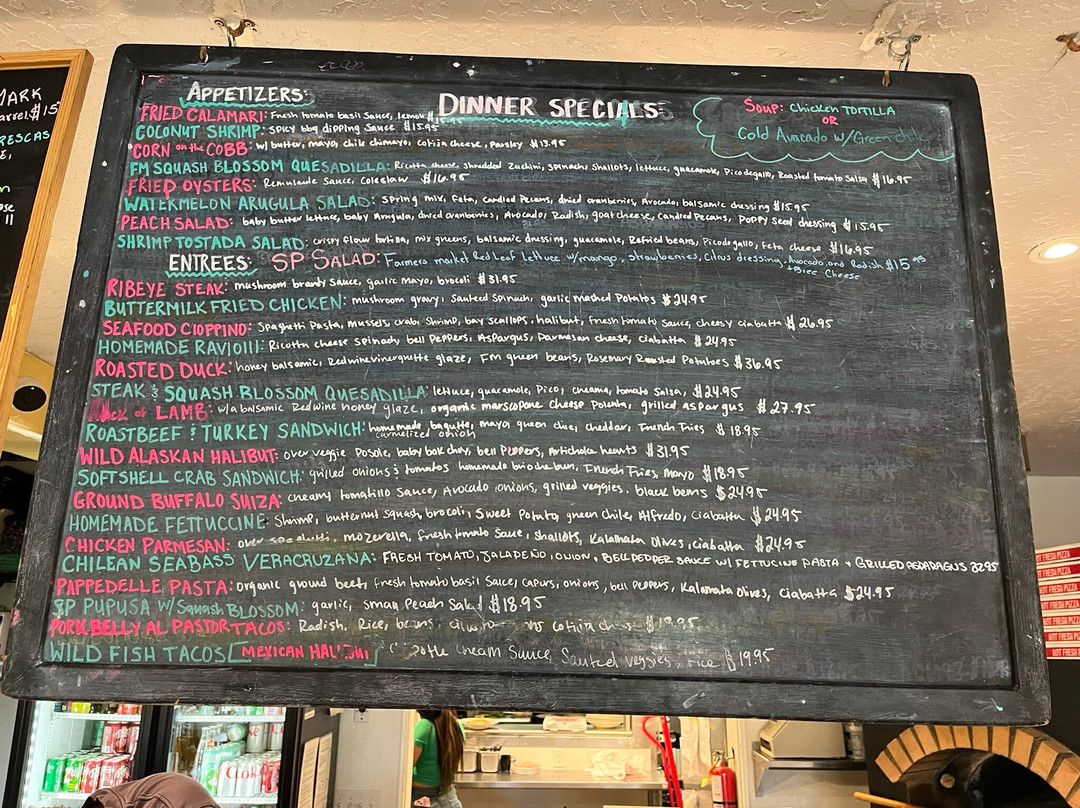 MARK
$15
RESCAS
APPETIZERS:
DINNER SPECIALS:
SOUP: Chicken TORTILLA
OR
Cold Avacado w/Green chile
FRIED CALAMARI: Fresh tomato basil Sauce, lemon
COCONUT SHRIMP: spicy bbq dipping Sauce $15.95
CORN on the COBB: w/ butter, mayo, chile chimayo, cotija cheese, parsley $13.95
FM SQUASH BLOSSOM QUESADILLA: Ricotta cheese, shredded Zuchini, spinach, shallots, lettuce, guacamole, Pico de gallo, Roasted tomato Salsa $16.95
FRIED OYSTERS: Remulade Sauce, Coleslaw $16.95
WATERMELON ARUGULA SALAD: spring mix, Feta, candied Pecans, dried cranberries, Avocado, balsamic dressing $15.95
PEACH SALAD: baby butter lettuce, baby Arugula, dried cranberries, Avocado, Radish, goat cheese, candied Pecans, Poppy Seed dressing $15.95
SHRIMP TOSTADA SALAD: crispy flour tortilla, mix greens, balsamic dressing, guacamole, Refried beans, Pico de gallo, Feta cheese $16.95
ENTREES: SP SALAD: Farmers market Red Leaf lettuce w/mango, strawberries, Citrus dressing, Avocado, and Radish $15.95
+ Cheese
RIBEYE STEAK: mushroom brandy Sauce, garlic mayo, brocoli $31.95
BUTTERMILK FRIED CHICKEN: mushroom gravy, Sauteed Spinach, garlic mashed Potatos $24.95
SEAFOOD CIOPPINO: Spaghetti Pasta, mussels, crab, Shrimp, bay scallops, halibut, fresh tomato Sauce, cheesy ciabatta $26.95
HOMEMADE RAVIOLI: Ricotta cheese spinach, bell Peppers, Aspargus, Parmesan cheese, ciabatta $24.95
ROASTED DUCK: honey balsamic, Redwine vinergrette glaze, Fm green beans, Rosemary Roasted Potatoes $36.95
STEAK & SQUASH BLOSSOM QUESADILLA: lettuce, guacamole, Pico, creama, tomato Salsa, $24.95
Rack of LAMB: w/a balsmic Redwine honey glaze, organic marscopone Cheese Polenta, grilled aspargus $27.95
ROASTBEEF & TURKEY SANDWICH: homemade bagutte, mayo, green chile, cheddar, French Fries $18.95
carmelized onion
WILD ALASKAN HALIBUT: over veggie Posole, baby bok choy, bell Peppers, Artichoke hearts $31.95
SOFTSHELL CRAB SANDWICH: grilled onions & tomatos homemade brioche bun, French Fries, mayo $18.95
GROUND BUFFALO SUIZA: creamy tomatillo Sauce, Avocado, onions, grilled veggies. black beans $24.95
HOMEMADE FETTUCCINE: Shrimp, butternut squash, brocoli, Sweet Potato, green chile, Alfredo, Ciabatta $24.95
CHICKEN PARMESAN: over spaghetti, mozerella, fresh tomato sauce, shallots, Kalamata Olives, ciabatta $24.95
CHILEAN SEABASS VERACRUZANA: FRESH TOMATO, JALAPEÑO, ONION, BELL PEPPER SAUCE W/ FETTUCINE PASTA + GRILLED ASPARAGUS 32.95
PAPPEDELLE PASTA: organic ground beef, fresh tomato basil Sauce, capurs, onions, bell Peppers, Kalamata Olives, ciabatta $24.95
SP PUPUSA W/ Squash BLOSSOM: garlic, small Peach Salad $18.95
PORK BELLY AL PASTOR TACOS: Radish, Rice, beans, cotija $19.95
WILD FISH TACOS [MEXICAN HALIBUT] Cream Sauce, Sauteed veggies, rice $19.95
HOT FRESH PIZZA
HOT FRESH PIZZA
HOT FRESH PIZZA
HOT FRESH
Coke